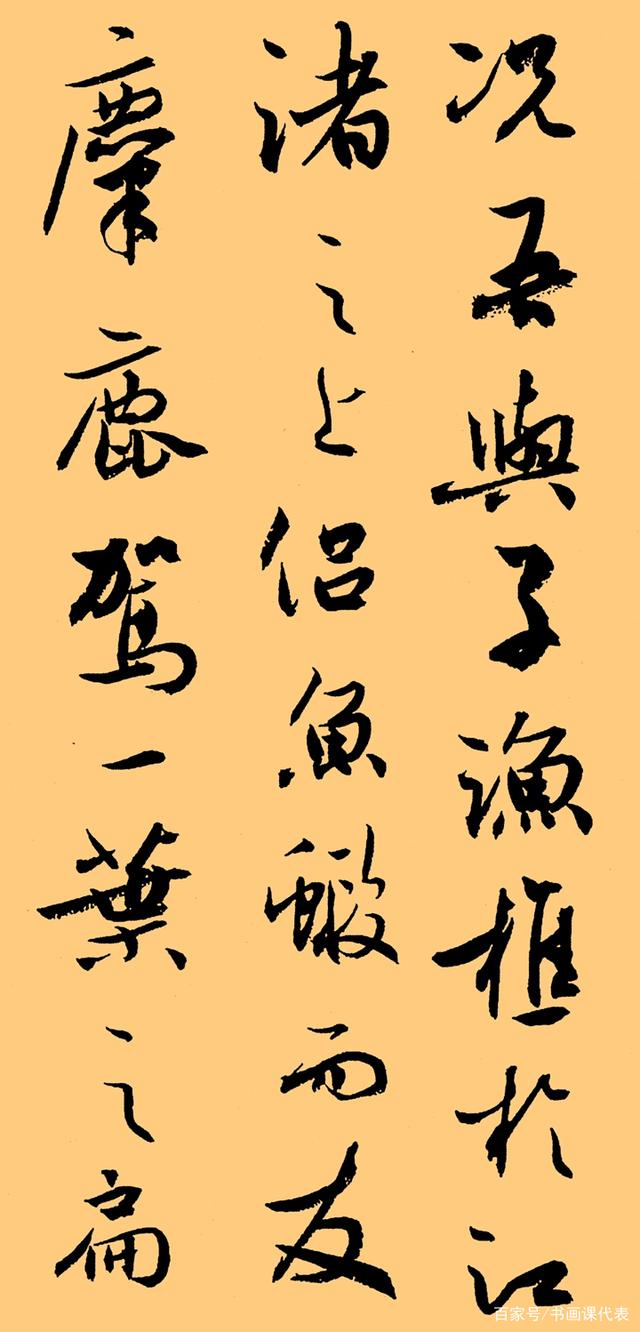 况吾與子漁樵於江
渚之上侣魚蝦而友
麋鹿駕一葉之扁
百家号/书画课代表